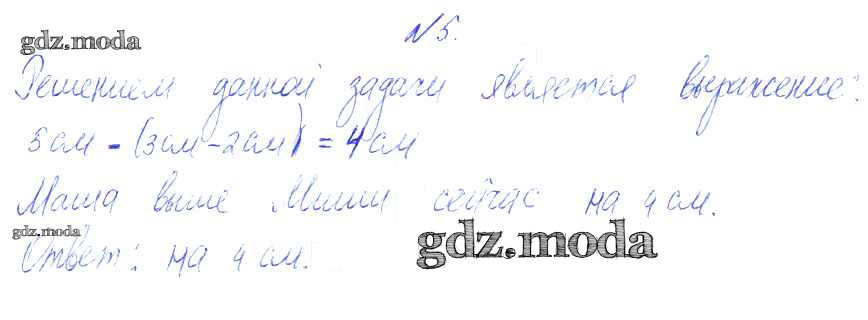 gdz.moda
№5.
Решением данной задачи является выражение:
5см - (3см - 2см) = 4 см
Маша выше Миши сейчас на 4 см.
gdz.moda
Ответ: на 4 см.
gdz.moda